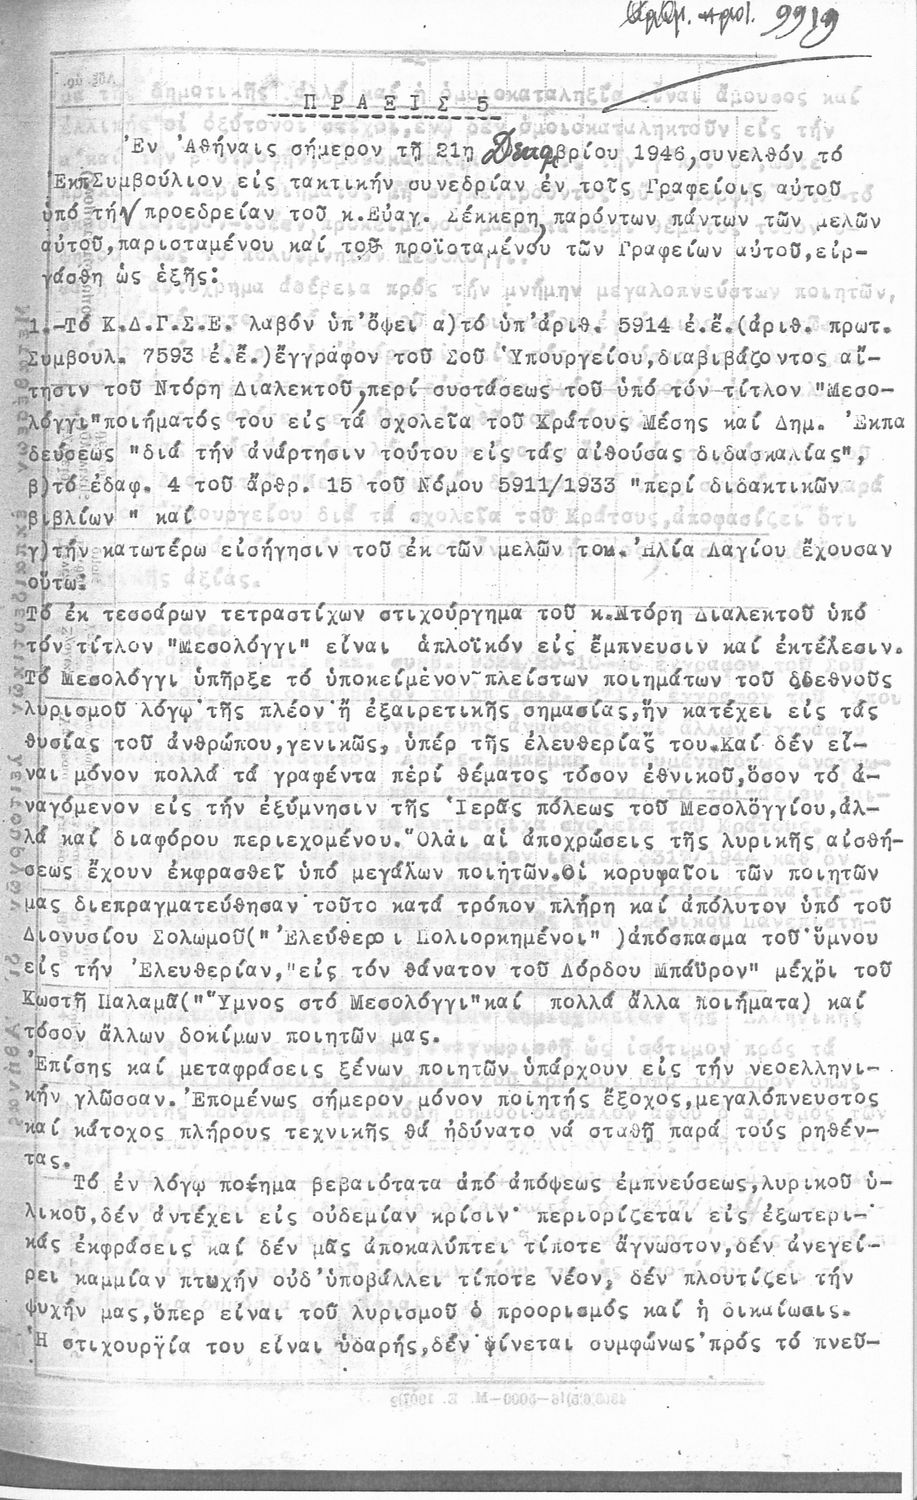 Αριθμ. πρωτ. 9919
ΠΡΑΞΙΣ 5
Ἐν Ἀθήναις σήμερον τῇ 21η Δεκεμβρίου 1946,συνελθόν τό
ἘκπΣυμβούλιον εἰς τακτικήν συνεδρίαν ἐν τοῖς Γραφείοις αὐτοῦ
ὑπό τήν προεδρείαν τοῦ κ.Εὐαγ. Σέκκερη,παρόντων πάντων τῶν μελῶν
αὐτοῦ,παρισταμένου καί τοῦ προϊσταμένου τῶν Γραφείων αὐτοῦ,εἰρ-
γάσθη ὡς ἑξῆς:
1.-Τό Κ.Δ.Γ.Σ.Ε. λαβόν ὑπ'ὄψει α)τό ὑπ'ἀριθ. 5914 ἐ.ἔ.(ἀριθ. πρωτ.
Συμβουλ. 7593 ἐ.ἔ.)ἔγγραφον τοῦ Σοῦ Ὑπουργείου,διαβιβάζοντος αἴ-
τησιν τοῦ Ντόρη Διαλεκτοῦ,περί συστάσεως τοῦ ὑπό τόν τίτλον "Μεσο-
λόγγι"ποιήματός του εἰς τά σχολεῖα τοῦ Κράτους Μέσης καί Δημ. Ἐκπα
δεύσεως "διά τήν ἀνάρτησιν τούτου εἰς τάς αἰθούσας διδασκαλίας",
β)τό ἐδαφ. 4 τοῦ ἄρθρ. 15 τοῦ Νόμου 5911/1933 "περί διδακτικῶν
βιβλίων " καί
γ)τήν κατωτέρω εἰσήγησιν τοῦ ἐκ τῶν μελῶν του κ. Ἠλία Λαγίου ἔχουσαν
οὕτω:
Τό ἐκ τεσσάρων τετραστίχων στιχούργημα τοῦ κ.Ντόρη Διαλεκτοῦ ὑπό
τόν τίτλον "Μεσολόγγι" εἶναι ἁπλοϊκόν εἰς ἔμπνευσιν καί ἐκτέλεσιν.
Τό Μεσολόγγι ὑπῆρξε τό ὑποκείμενον πλείστων ποιημάτων τοῦ διεθνοῦς
λυρισμοῦ λόγῳ τῆς πλέον ἤ ἐξαιρετικῆς σημασίας,ἥν κατέχει εἰς τάς
θυσίας τοῦ ἀνθρώπου,γενικῶς, ὑπέρ τῆς ἐλευθερίας του.Καί δέν εἶ-
ναι μόνον πολλά τά γραφέντα περί θέματος τόσον ἐθνικοῦ,ὅσον τό ἀ-
ναγόμενον εἰς τήν ἐξύμνησιν τῆς Ἱερᾶς πόλεως τοῦ Μεσολογγίου,ἀλ-
λά καί διαφόρου περιεχομένου. Ὅλαι αἱ ἀποχρώσεις τῆς λυρικῆς αἰσθή-
σεως ἔχουν ἐκφρασθεῖ ὑπό μεγάλων ποιητῶν.Οἱ κορυφαῖοι τῶν ποιητῶν
μας διεπραγματεύθησαν τοῦτο κατά τρόπον πλήρη καί ἀπόλυτον ὑπό τοῦ
Διονυσίου Σολωμοῦ("Ἐλεύθεροι Πολιορκημένοι" )ἀπόσπασμα τοῦ ὕμνου
εἰς τήν Ἐλευθερίαν,"εἰς τόν θάνατον τοῦ Λόρδου Μπάϋρον" μέχρι τοῦ
Κωστῆ Παλαμᾶ("Ὕμνος στό Μεσολόγγι"καί πολλά ἄλλα ποιήματα) καί
τόσον ἄλλων δοκίμων ποιητῶν μας.
Ἐπίσης καί μεταφράσεις ξένων ποιητῶν ὑπάρχουν εἰς τήν νεοελληνι-
κήν γλῶσσαν. Ἑπομένως σήμερον μόνον ποιητής ἔξοχος,μεγαλόπνευστος
καί κάτοχος πλήρους τεχνικῆς θά ἠδύνατο νά σταθῇ παρά τούς ρηθέν-
τας.
Τό ἐν λόγῳ ποίημα βεβαιότατα ἀπό ἀπόψεως ἐμπνεύσεως,λυρικοῦ ὑ-
λικοῦ,δέν ἀντέχει εἰς οὐδεμίαν κρίσιν· περιορίζεται εἰς ἐξωτερι-
κάς ἐκφράσεις καί δέν μᾶς ἀποκαλύπτει τίποτε ἄγνωστον,δέν ἀνεγεί-
ρει καμμίαν πτυχήν οὐδ'ὑποβάλλει τίποτε νέον, δέν πλουτίζει τήν
ψυχήν μας,ὅπερ εἶναι τοῦ λυρισμοῦ ὁ προορισμός καί ἡ δικαίωσις.
Ἡ στιχουργία του εἶναι ὑδαρής,δέν γίνεται συμφώνως πρός τό πνεῦ-